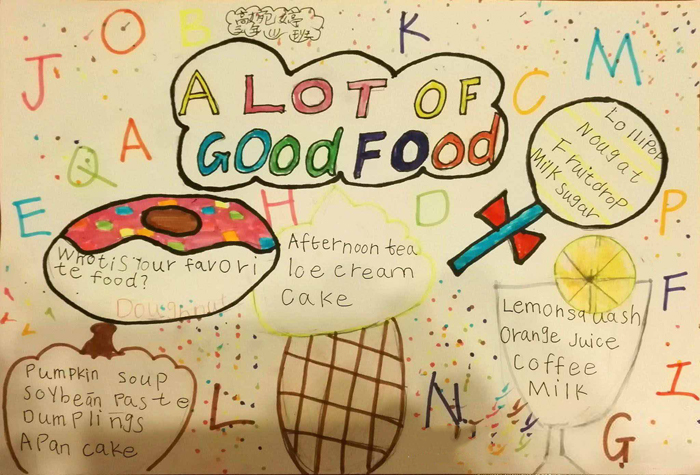 O
B
K
M
J
A LOT OF
GOod FOod
C
A
Q
Lollipop
Nougat
Fruitdrop
Milk sugar
E
H
D
P
What is Your favori
te food?
Doughnut
Afternoon tea
Ice cream
Cake
F
Lemonsquash
Orange Juice
Coffee
Milk
Pumpkin soup
Soybean Paste
Dumplings
A Pan cake
L
N
I
G